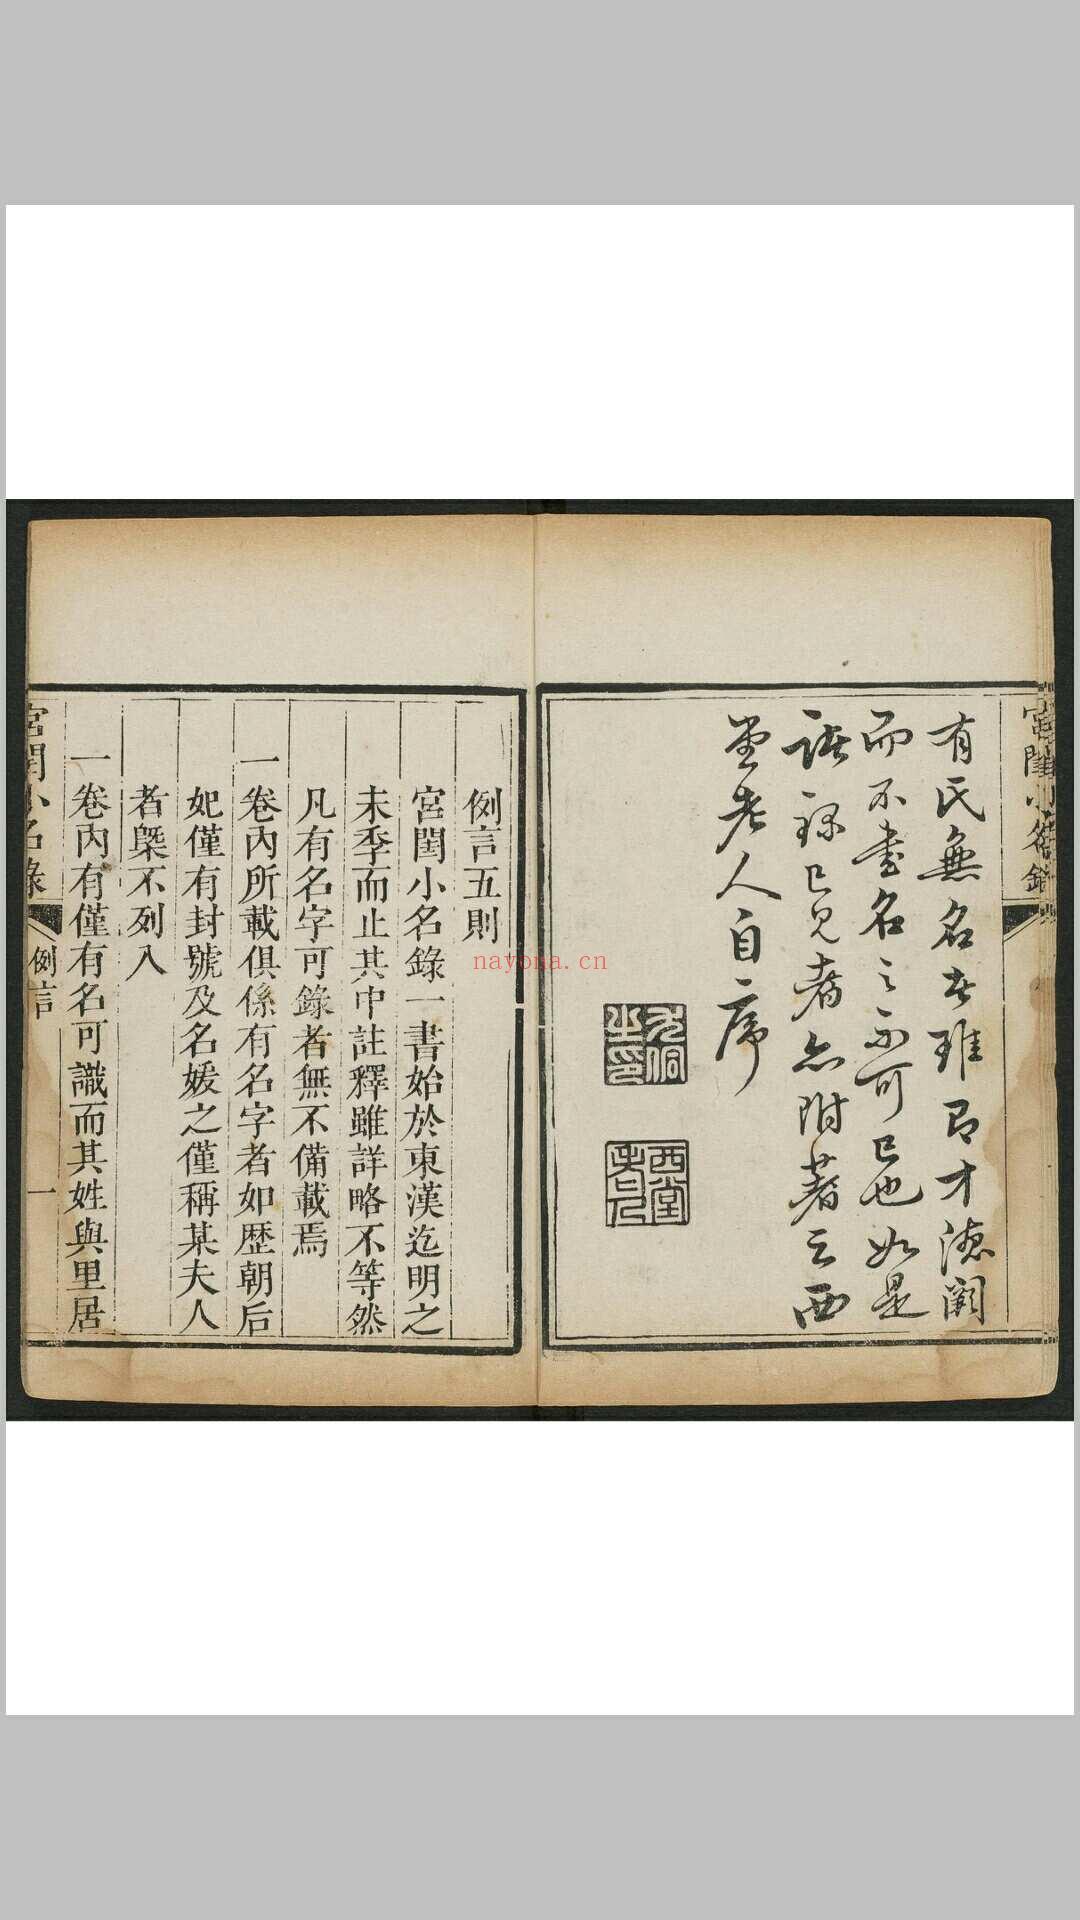 宮閨小名錄
有氏無名者雖才德闕
而不書名之不可已也如是
已見者亦附著之西
堂老人自序
尤侗之印
西堂老人
例言五則
宮閨小名錄一書始於東漢迄明之
末季而止其中註釋雖詳略不等然
凡有名字可錄者無不備載焉
一卷內所載俱係有名字者如歷朝后
妃僅有封號及名媛之僅稱某夫人
者槩不列入
一卷內有僅有名可識而其姓與里居
宮閨小名錄 例言 一
nayona.cn